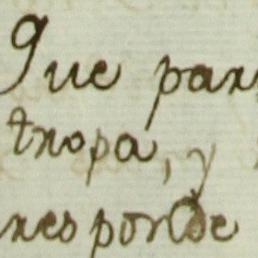 Que par
tropa, y
responde